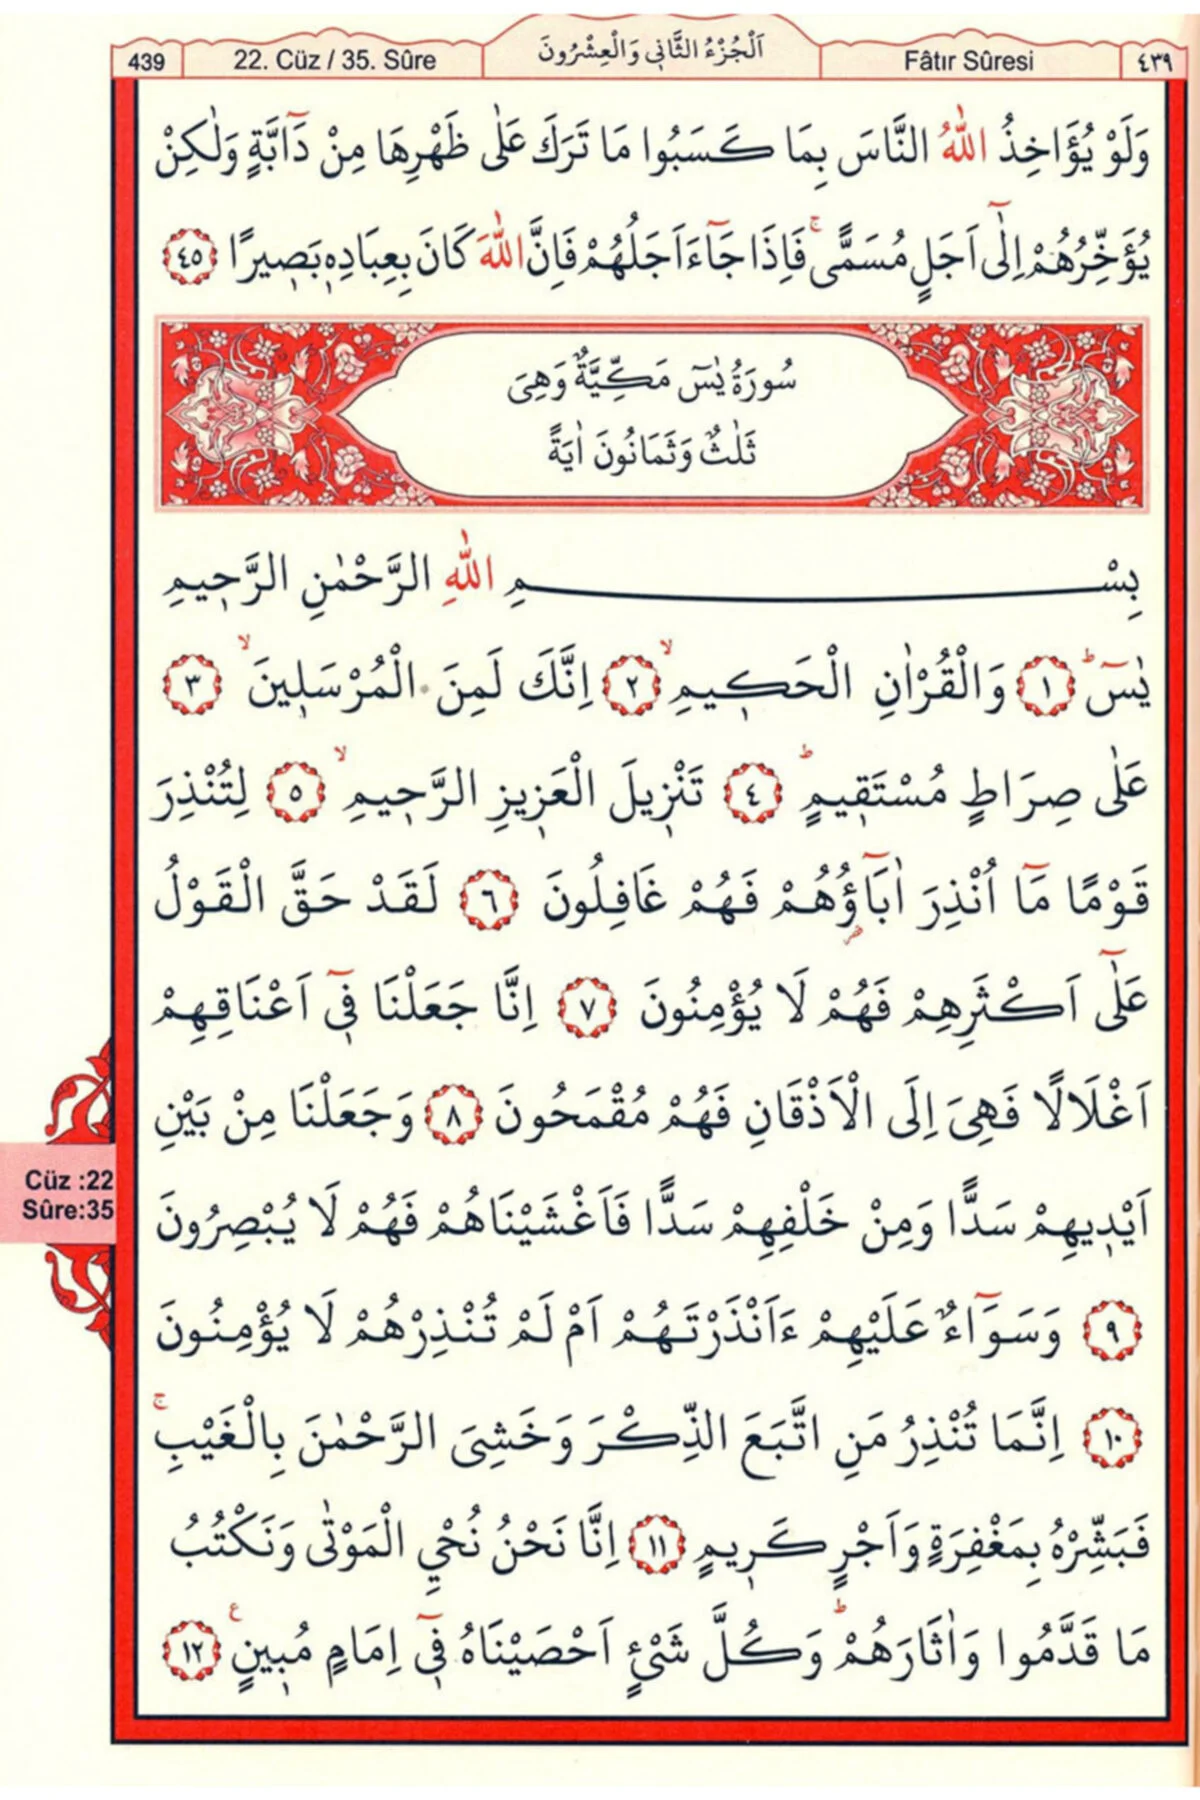 439 22. Cüz / 35. Sûre اَلْجُزْءُ الثَّانِي وَالْعِشْرُونَ Fâtır Sûresi ٤٣٩
وَلَوْ يُؤَاخِذُ اللّٰهُ النَّاسَ بِمَا كَسَبُوا مَا تَرَكَ عَلٰى ظَهْرِهَا مِنْ دَٓابَّةٍ وَلٰكِنْ
يُؤَخِّرُهُمْ اِلٰٓى اَجَلٍ مُسَمًّىۚ فَاِذَا جَٓاءَ اَجَلُهُمْ فَاِنَّ اللّٰهَ كَانَ بِعِبَادِهٖ بَصٖيرًا ٤٥
سُورَةُ يٰسٓ مَكِّيَّةٌ وَهِىَ
ثَلٰثٌ وَثَمَانُونَ اٰيَةً
بِسْمِ اللّٰهِ الرَّحْمٰنِ الرَّحٖيمِ
يٰسٓۜ ١ وَالْقُرْاٰنِ الْحَكٖيمِۙ ٢ اِنَّكَ لَمِنَ الْمُرْسَلٖينَۙ ٣
عَلٰى صِرَاطٍ مُسْتَقٖيمٍۜ ٤ تَنْزٖيلَ الْعَزٖيزِ الرَّحٖيمِۙ ٥ لِتُنْذِرَ
قَوْمًا مَٓا اُنْذِرَ اٰبَٓاؤُهُمْ فَهُمْ غَافِلُونَ ٦ لَقَدْ حَقَّ الْقَوْلُ
عَلٰٓى اَكْثَرِهِمْ فَهُمْ لَا يُؤْمِنُونَ ٧ اِنَّا جَعَلْنَا فٖٓى اَعْنَاقِهِمْ
اَغْلَالًا فَهِىَ اِلَى الْاَذْقَانِ فَهُمْ مُقْمَحُونَ ٨ وَجَعَلْنَا مِنْ بَيْنِ
اَيْدٖيهِمْ سَدًّا وَمِنْ خَلْفِهِمْ سَدًّا فَاَغْشَيْنَاهُمْ فَهُمْ لَا يُبْصِرُونَ
Cüz :22
Sûre:35
٩ وَسَوَٓاءٌ عَلَيْهِمْ ءَاَنْذَرْتَهُمْ اَمْ لَمْ تُنْذِرْهُمْ لَا يُؤْمِنُونَ
١٠ اِنَّمَا تُنْذِرُ مَنِ اتَّبَعَ الذِّكْرَ وَخَشِىَ الرَّحْمٰنَ بِالْغَيْبِۚ
فَبَشِّرْهُ بِمَغْفِرَةٍ وَاَجْرٍ كَرٖيمٍ ١١ اِنَّا نَحْنُ نُحْيِ الْمَوْتٰى وَنَكْتُبُ
مَا قَدَّمُوا وَاٰثَارَهُمْۜ وَكُلَّ شَىْءٍ اَحْصَيْنَاهُ فٖٓى اِمَامٍ مُبٖينٍ ع ١٢